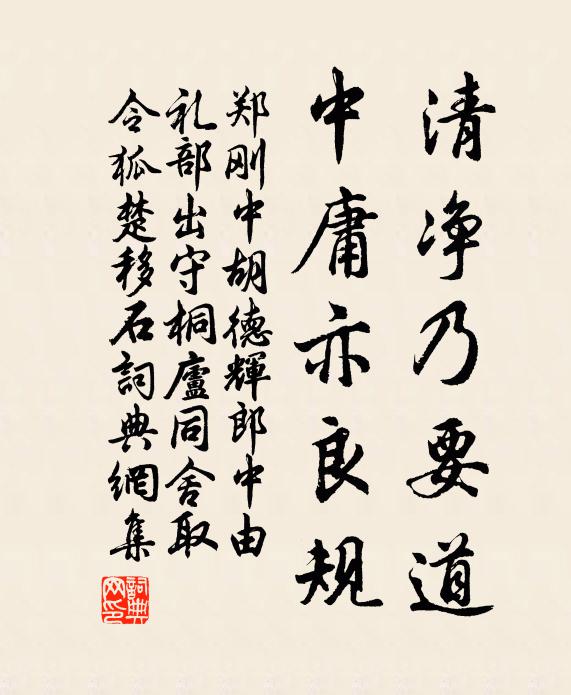 清净乃要道
中庸亦良规
郑刚中胡德輝郎中由
礼部出守桐廬同舍取
令狐楚移石詞典網集
詞典
网印